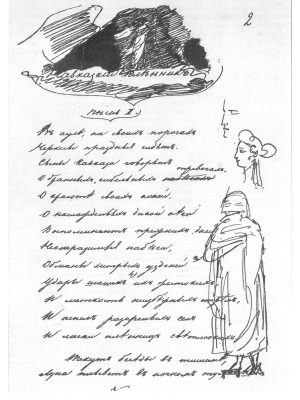 2
Кавказскій плѣнникъ
пѣснь I.
Въ аулѣ, на своихъ порогахъ
Черкесы праздные сидятъ.
Сыны Кавказа говорятъ
О бранныхъ, гибельныхъ тревогахъ,
О красотѣ своихъ коней,
О наслажденьяхъ дикой нѣги
Вспоминаютъ прежнихъ дней
Неотразимые набѣги,
Обманы хитрыхъ узденей,
Удары шашекъ ихъ жестокихъ,
И мѣткость неизбѣжныхъ стрѣлъ,
И пепелъ разоренныхъ селъ
И ласки плѣнницъ
Текутъ бесѣды въ тишинѣ
Луна плыветъ въ ночномъ туманѣ